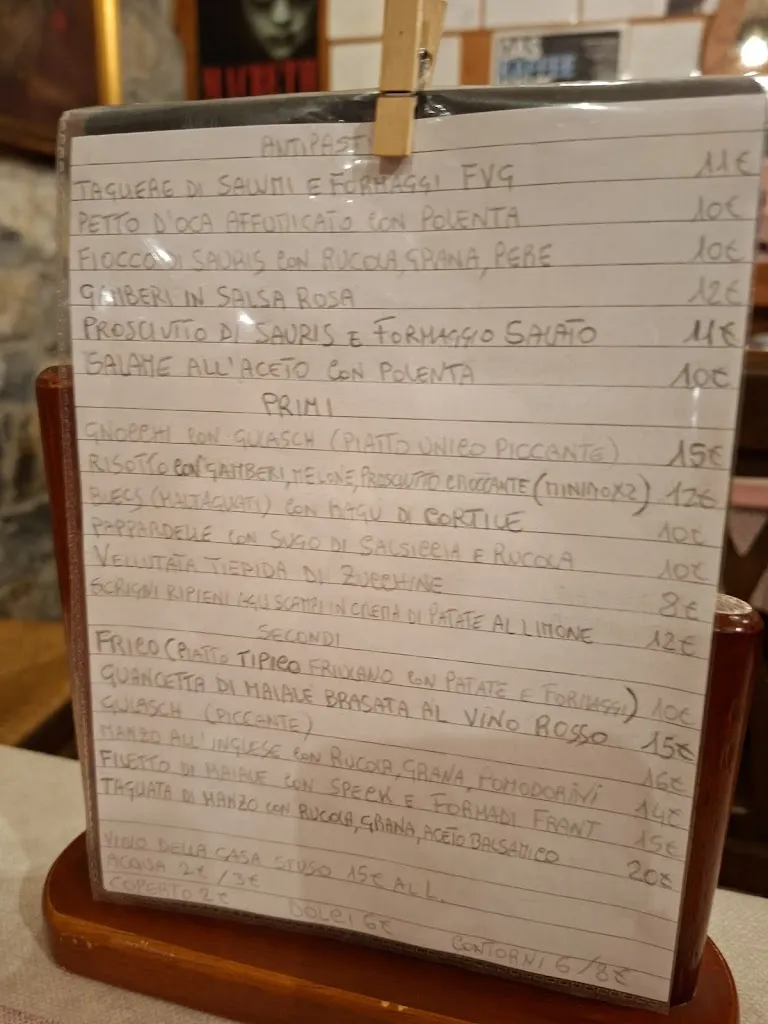 ANTIPASTI
TAGLIERE DI SALUMI E FORMAGGI FVG 11€
PETTO D'OCA AFFUMICATO CON POLENTA 10€
FIOCCO DI SAURIS CON RUCOLA, GRANA, PEPE 10€
GAMBERI IN SALSA ROSA 12€
PROSCIUTTO DI SAURIS E FORMAGGIO SALATO 11€
SALAME ALL'ACETO CON POLENTA 10€
PRIMI
GNOCCHI CON GULASCH (PIATTO UNICO PICCANTE) 15€
RISOTTO CON GAMBERI, MELONE, PROSCIUTTO CROCCANTE (MINIMO X2) 12€
BLECS (MALTAGLIATI) CON RAGU DI CORTILE 10€
PAPPARDELLE CON SUGO DI SALSICCIA E RUCOLA 10€
VELLUTATA TIEPIDA DI ZUCCHINE 8€
SCRIGNI RIPIENI AGLI SCAMPI IN CREMA DI PATATE AL LIMONE 12€
SECONDI
FRICO (PIATTO TIPICO FRIULANO CON PATATE E FORMAGGI) 10€
GUANCETTA DI MAIALE BRASATA AL VINO ROSSO 15€
GULASCH (PICCANTE) 16€
MANZO ALL'INGLESE CON RUCOLA, GRANA, POMODORINI 14€
FILETTO DI MAIALE CON SPECK E FORMADI FRANT 15€
TAGLIATA DI MANZO CON RUCOLA, GRANA, ACETO BALSAMICO 20€
VINO DELLA CASA SFUSO 15€ AL L.
ACQUA 2€ / 3€
COPERTO 2€ DOLCI 6€ CONTORNI 6/8€